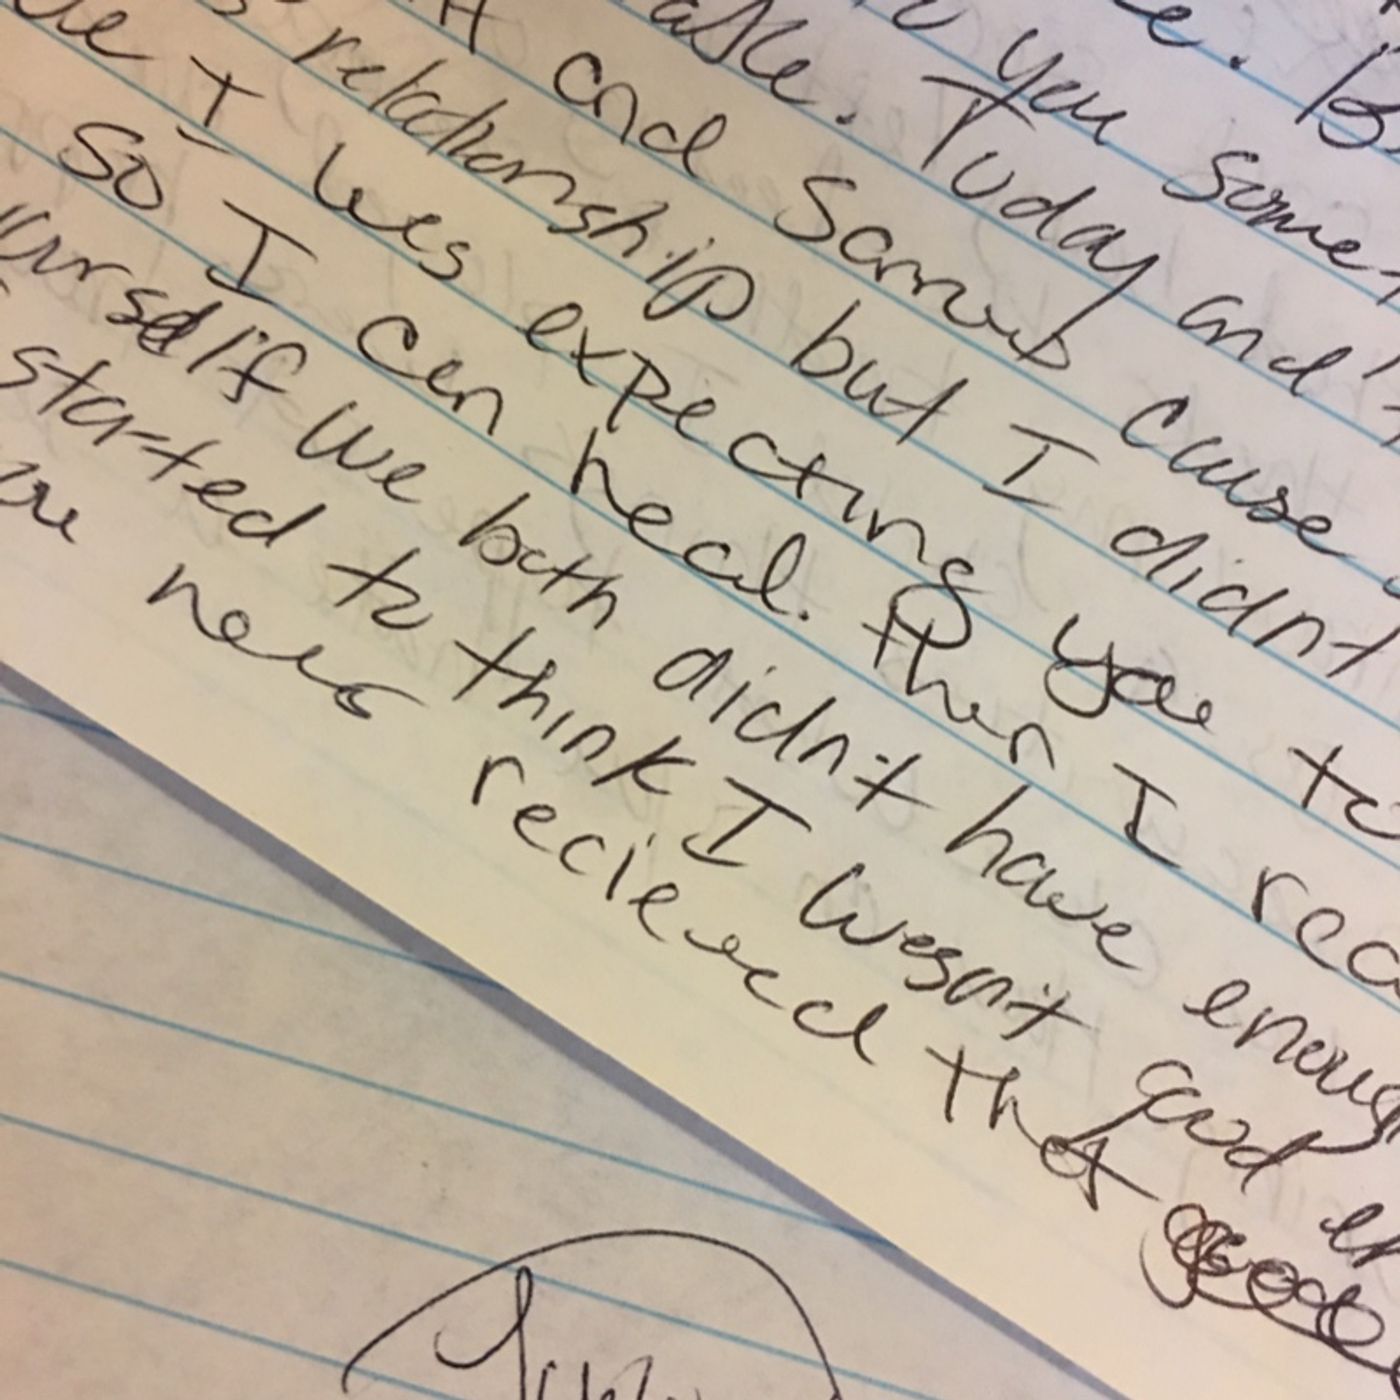 you some
Today and
and cause
relationship but I didnt
I was expecting you to
So I can heal. then I rea
ourself we both didn't have enoug
started to think I wasn't good en
never recieved that